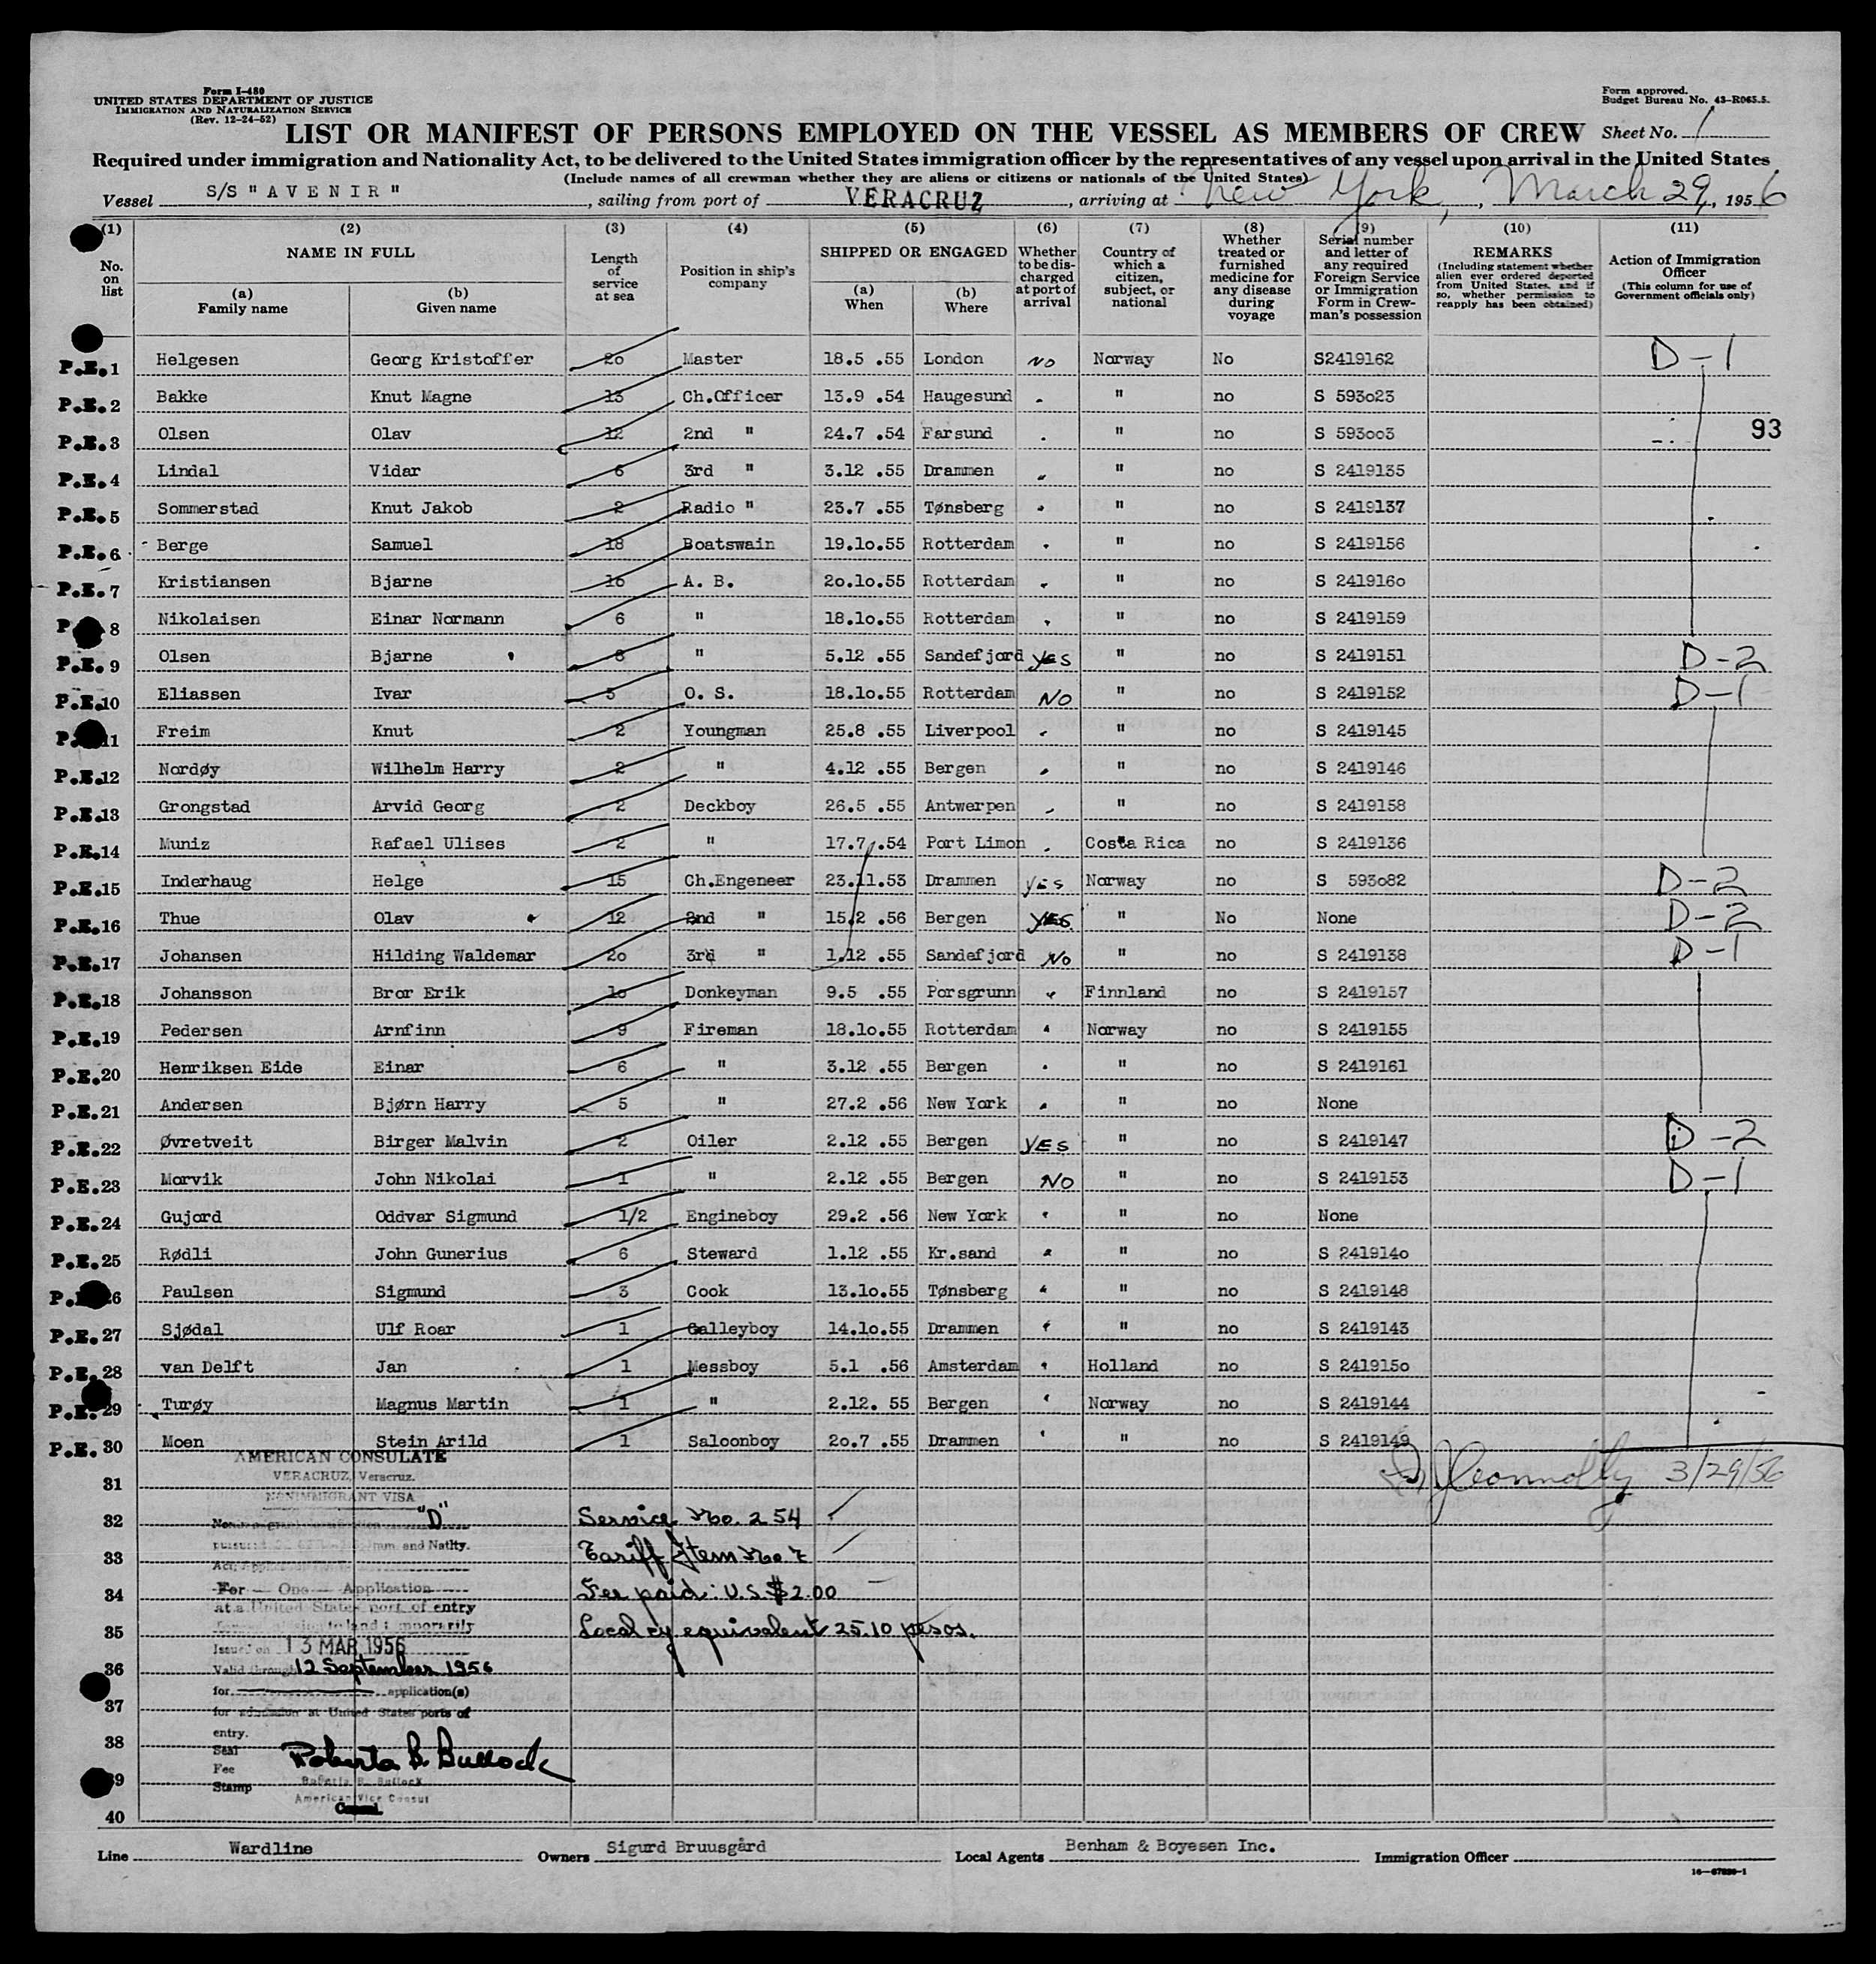 Form I-480
UNITED STATES DEPARTMENT OF JUSTICE
IMMIGRATION AND NATURALIZATION SERVICE
(Rev. 12-24-52)
Form approved.
Budget Bureau No. 43-R065.5.
LIST OR MANIFEST OF PERSONS EMPLOYED ON THE VESSEL AS MEMBERS OF CREW Sheet No. 1
Required under immigration and Nationality Act, to be delivered to the United States immigration officer by the representatives of any vessel upon arrival in the United States
(Include names of all crewman whether they are aliens or citizens or nationals of the United States)
Vessel S/S "AVENIR", sailing from port of VERACRUZ, arriving at New York, March 29, 1956
(1) No. on list (2) NAME IN FULL (a) Family name (b) Given name (3) Length of service at sea (4) Position in ship's company (5) SHIPPED OR ENGAGED (a) When (b) Where (6) Whether to be discharged at port of arrival (7) Country of which a citizen, subject, or national (8) Whether treated or furnished medicine for any disease during voyage (9) Serial number and letter of any required Foreign Service or Immigration Form in Crewman's possession (10) REMARKS (Including statement whether alien ever ordered deported from United States, and if so, whether permission to reapply has been obtained) (11) Action of Immigration Officer (This column for use of Government officials only)
P.E. 1 Helgesen Georg Kristoffer 20 Master 18.5 .55 London NO Norway No S2419162 D-1
P.E. 2 Bakke Knut Magne 13 Ch.Officer 13.9 .54 Haugesund " no S 593o23
P.E. 3 Olsen Olav 12 2nd " 24.7 .54 Farsund " no S 593oo3 93
P.E. 4 Lindal Vidar 6 3rd " 3.12 .55 Drammen " no S 2419135
P.E. 5 Sommerstad Knut Jakob 2 Radio " 23.7 .55 Tønsberg " no S 2419137
P.E. 6 Berge Samuel 18 Boatswain 19.1o.55 Rotterdam " no S 2419156
P.E. 7 Kristiansen Bjarne A. B. 2o.1o.55 Rotterdam " no S 241916o
P 8 Nikolaisen Einar Normann 6 " 18.1o.55 Rotterdam " no S 2419159
P.E. 9 Olsen Bjarne 8 " 5.12 .55 Sandefjord YES " no S 2419151 D-2
P.E.10 Eliassen Ivar 3 O. S. 18.1o.55 Rotterdam NO " no S 2419152 D-1
P. 11 Freim Knut 2 Youngman 25.8 .55 Liverpool " no S 2419145
P.E.12 Nordøy Wilhelm Harry 2 " 4.12 .55 Bergen " no S 2419146
P.E.13 Grongstad Arvid Georg 2 Deckboy 26.5 .55 Antwerpen " no S 2419158
P.E.14 Muniz Rafael Ulises 2 " 17.7 .54 Port Limon Costa Rica no S 2419136
P.E.15 Inderhaug Helge 15 Ch.Engeneer 23.11.53 Drammen YES Norway no S 593o82 D-2
P.E.16 Thue Olav 12 2nd " 15.2 .56 Bergen YES " No None D-2
P.E.17 Johansen Hilding Waldemar 2o 3rd " 1.12 .55 Sandefjord No " no S 2419138 D-1
P.E.18 Johansson Bror Erik 1o Donkeyman 9.5 .55 Porsgrunn Finnland no S 2419157
P.E.19 Pedersen Arnfinn 9 Fireman 18.1o.55 Rotterdam Norway no S 2419155
P.E.20 Henriksen Eide Einar 6 " 3.12 .55 Bergen " no S 2419161
P.E.21 Andersen Bjørn Harry 5 " 27.2 .56 New York " no None
P.E.22 Øvretveit Birger Malvin 2 Oiler 2.12 .55 Bergen YES " no S 2419147 D-2
P.E.23 Morvik John Nikolai 1 " 2.12 .55 Bergen NO " no S 2419153 D-1
P.E.24 Gujord Oddvar Sigmund 1/2 Engineboy 29.2 .56 New York " no None
P.E.25 Rødli John Gunerius 6 Steward 1.12 .55 Kr.sand " no S 241914o
P. 26 Paulsen Sigmund 3 Cook 13.1o.55 Tønsberg " no S 2419148
P.E.27 Sjødal Ulf Roar 1 Galleyboy 14.1o.55 Drammen " no S 2419143
P.E.28 van Delft Jan 1 Messboy 5.1 .56 Amsterdam Holland no S 241915o
P.E.29 Turøy Magnus Martin 1 " 2.12. 55 Bergen Norway no S 2419144
P.E.30 Moen Stein Arild 1 Saloonboy 2o.7 .55 Drammen " no S 2419149
AMERICAN CONSULATE
31 VERACRUZ, Veracruz. Connolly 3/29/56
NONIMMIGRANT VISA
32 "D" Service No. 254
33 and Natlty. Tariff Item No. 7
34 For One Application Fee paid: U.S. $2.00
at a United States port of entry
35 Local cy equivalent 25.10 pesos.
Issued on 13 MAR 1956
36 Valid through 12 September 1956
for application(s)
37 for admission at United States ports of
entry.
38 Seal Roberta B. Bullock
Fee
39 Stamp
American Vice Consul
Consul
40
Line Wardline Owners Sigurd Bruusgård Local Agents Benham & Boyesen Inc. Immigration Officer